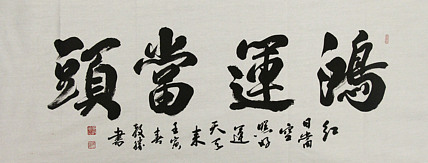 鴻運當頭
紅
日當
空
照好
運
天天
來
壬寅
春
毅然
書